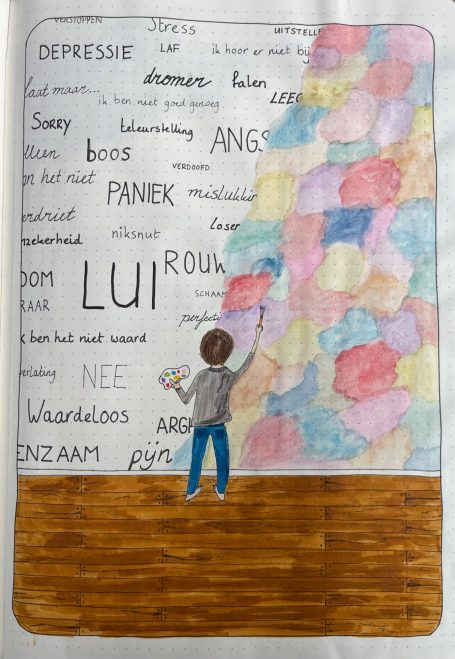 VERSTOPPEN
Stress
UITSTELLE
DEPRESSIE
LAF
ik hoor er niet bij
dromer
falen
laat maar...
LEEG
ik ben niet goed genoeg
SORRY
teleurstelling
ANGS
boos
VERDOOFD
n het niet
PANIEK
mislukkin
erdriet
loser
nzekerheid
niksnut
ROUW
OOM
LUI
SCHAAM
RAAR
perfecti
k ben het niet waard
verlating
NEE
Waardeloos
ARGH
ENZAAM
pijn